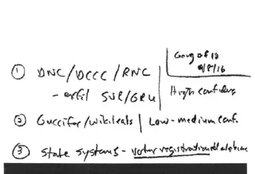 Gang of 12
9/8/16
① DNC/DCCC/RNC
- exfil SVR/GRU
High confidence
② Guccifer/wikileaks | Low-medium conf.
③ State systems - voter registration